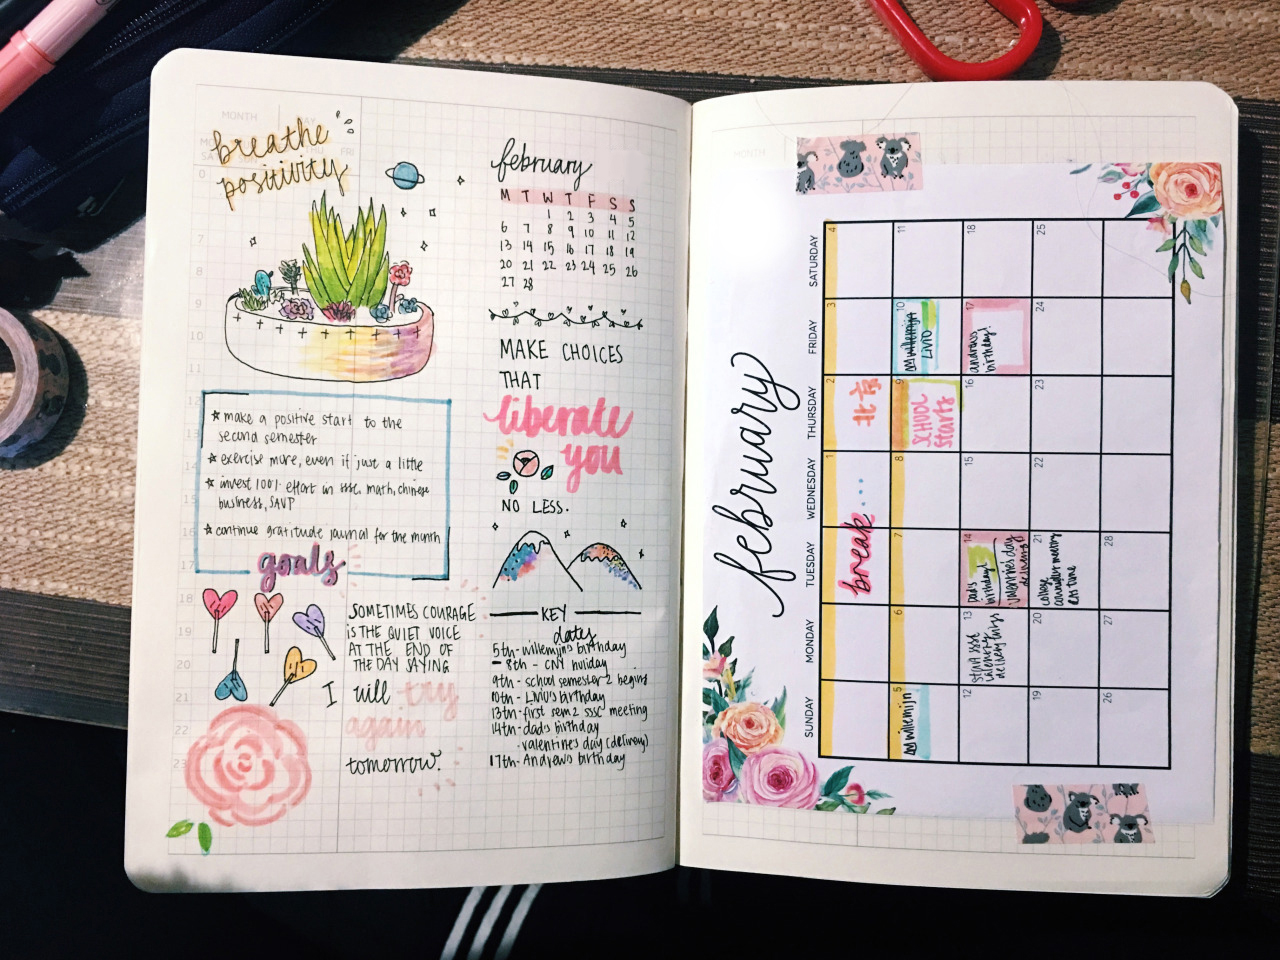 MONTH
breathe
positivity
★ make a positive start to the
second semester
★ exercise more, even if just a little
★ invest 100% effort in sssc, math, chinese
business, SAVP
★ continue gratitude journal for the month
goals
SOMETIMES COURAGE
IS THE QUIET VOICE
AT THE END OF
THE DAY SAYING
I will try
again
tomorrow.
7
8
9
10
11
12
13
14
15
16
17
18
19
20
21
22
23
february
M T W T F S S
1 2 3 4 5
6 7 8 9 10 11 12
13 14 15 16 17 18 19
20 21 22 23 24 25 26
27 28
MAKE CHOICES
THAT
liberate
you
NO LESS.
KEY
dates
5th - willemijn's birthday
- 8th - CNY holiday
9th - school semester 2 begins
10th - LIVIU's birthday
13th - first sem 2 sssc meeting
14th - dad's birthday
- valentine's day (delivery)
17th - Andrew's birthday
MONTH
february
SUNDAY
MONDAY
TUESDAY
WEDNESDAY
THURSDAY
FRIDAY
SATURDAY
1
2
3
4
break...
北京
5
6
7
8
9
10
11
willemijn
SCHOOL
starts
willemijn
LIVIU
12
13
14
15
16
17
18
dad's
birthday!
valentine's day
andrew's
birthday!
19
20
21
22
23
24
25
college
counsellor meeting
26
27
28